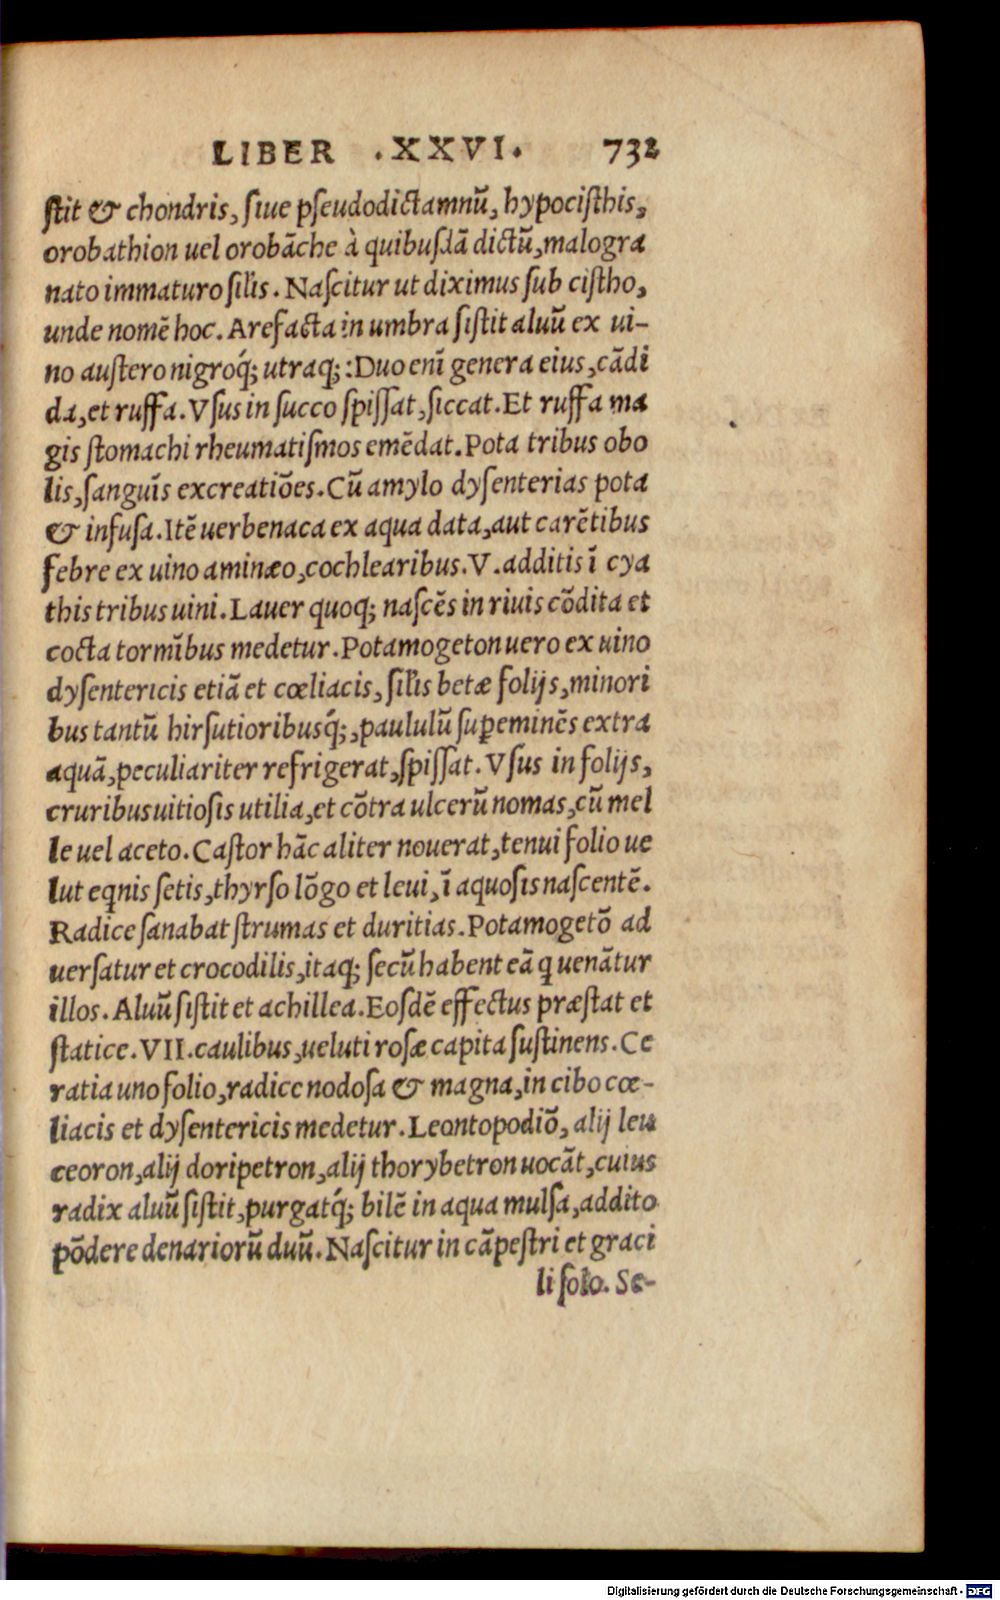 LIBER .XXVI. 732
ſtit & chondris, ſiue pſeudodictamnū, hypociſthis,
orobathion uel orobāche à quibuſdā dictū, malogra
nato immaturo ſiĺis. Naſcitur ut diximus ſub ciſtho,
unde nomē hoc. Arefacta in umbra ſiſtit aluū ex ui-
no auſtero nigroq́; utraq;: Duo enī genera eius, cādi
da, et ruffa. Vſus in ſucco ſpiſſat, ſiccat. Et ruffa ma
gis ſtomachi rheumatiſmos emēdat. Pota tribus obo
lis, ſanguīs excreatiōes. Cū amylo dyſenterias pota
& infuſa. Itē uerbenaca ex aqua data, aut carētibus
febre ex uino aminæo, cochlearibus. V. additis ī cya
this tribus uini. Lauer quoq; naſcēs in riuis cōdita et
cocta tormībus medetur. Potamogeton uero ex uino
dyſentericis etiā et cœliacis, ſiĺis betæ folijs, minori
bus tantū hirſutioribusq́;, paululū ſuꝑeminēs extra
aquā, peculiariter refrigerat, ſpiſſat. Vſus in folijs,
cruribus uitioſis utilia, et cōtra ulcerū nomas, cū mel
le uel aceto. Caſtor hāc aliter nouerat, tenui folio ue
lut eq̇nis ſetis, thyrſo lōgo et leui, ī aquoſis naſcentē.
Radice ſanabat ſtrumas et duritias. Potamogetō ad
uerſatur et crocodilis, itaq; ſecū habent eā q̇ uenātur
illos. Aluū ſiſtit et achillea. Eoſdē effectus præſtat et
ſtatice. VII. caulibus, ueluti roſæ capita ſuſtinens. Ce
ratia uno folio, radice nodoſa & magna, in cibo cœ-
liacis et dyſentericis medetur. Leontopodiō, alij leu
ceoron, alij doripetron, alij thorybetron uocāt, cuius
radix aluū ſiſtit, purgatq́; bilē in aqua mulſa, addito
pōdere denariorū duū. Naſcitur in cāpeſtri et graci
li ſolo. Se-
Digitalisierung gefördert durch die Deutsche Forschungsgemeinschaft - DFG